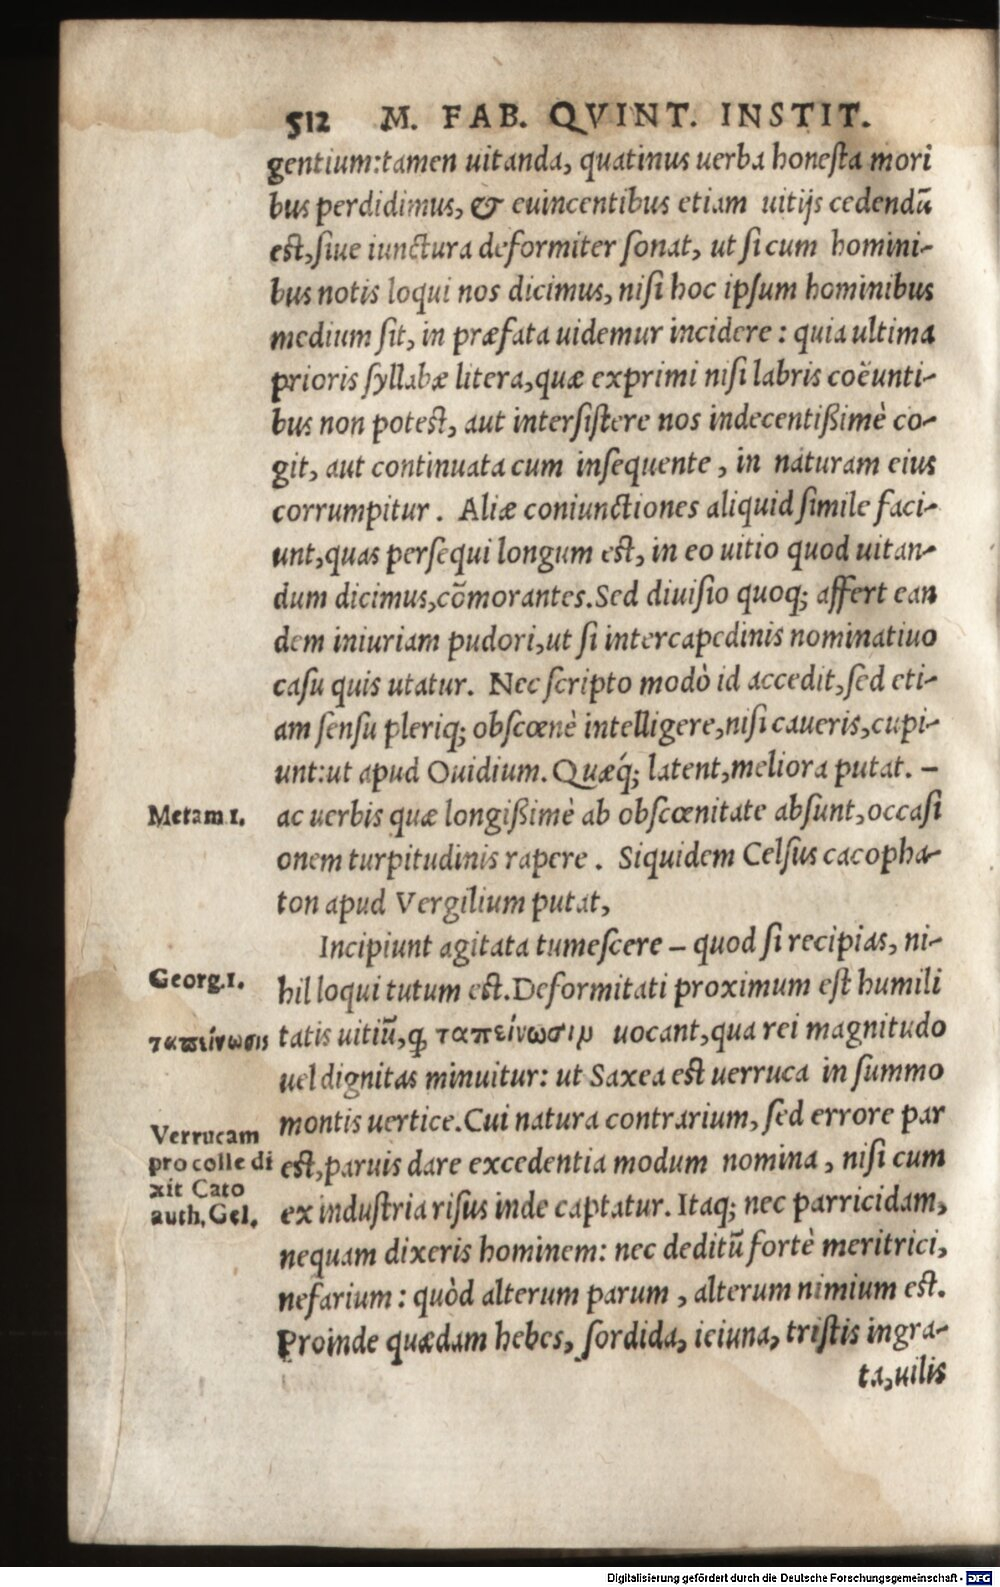 512 M. FAB. QVINT. INSTIT.
gentium:tamen uitanda, quatinus uerba honesta mori
bus perdidimus, & euincentibus etiam uitijs cedendũ
est,siue iunctura deformiter sonat, ut si cum homini-
bus notis loqui nos dicimus, nisi hoc ipsum hominibus
medium sit, in præfata uidemur incidere : quia ultima
prioris syllabæ litera,quæ exprimi nisi labris coëunti-
bus non potest, aut intersistere nos indecentißimè co-
git, aut continuata cum insequente , in naturam eius
corrumpitur . Aliæ coniunctiones aliquid simile faci-
unt,quas persequi longum est, in eo uitio quod uitan-
dum dicimus,cõmorantes.Sed diuisio quoq; affert ean
dem iniuriam pudori,ut si intercapedinis nominatiuo
casu quis utatur. Nec scripto modò id accedit,sed eti-
am sensu pleriq; obscœnè intelligere,nisi caueris,cupi-
unt:ut apud Ouidium. Quæq́; latent,meliora putat. –
Metam 1.
ac uerbis quæ longißimè ab obscœnitate absunt,occasi
onem turpitudinis rapere . Siquidem Celsus cacopha-
ton apud Vergilium putat,
Incipiunt agitata tumescere – quod si recipias, ni-
Georg.1.
hil loqui tutum est.Deformitati proximum est humili
ταπείνωσις
tatis uitiũ,ꝙ ταπείνωσιν uocant,qua rei magnitudo
uel dignitas minuitur: ut Saxea est uerruca in summo
montis uertice.Cui natura contrarium, sed errore par
Verrucam
pro colle di
xit Cato
auth.Gel.
est,paruis dare excedentia modum nomina , nisi cum
ex industria risus inde captatur. Itaq; nec parricidam,
nequam dixeris hominem: nec deditũ fortè meritrici,
nefarium : quòd alterum parum , alterum nimium est.
Proinde quædam hebes, sordida, ieiuna, tristis ingra-
ta,uilis
Digitalisierung gefördert durch die Deutsche Forschungsgemeinschaft - DFG